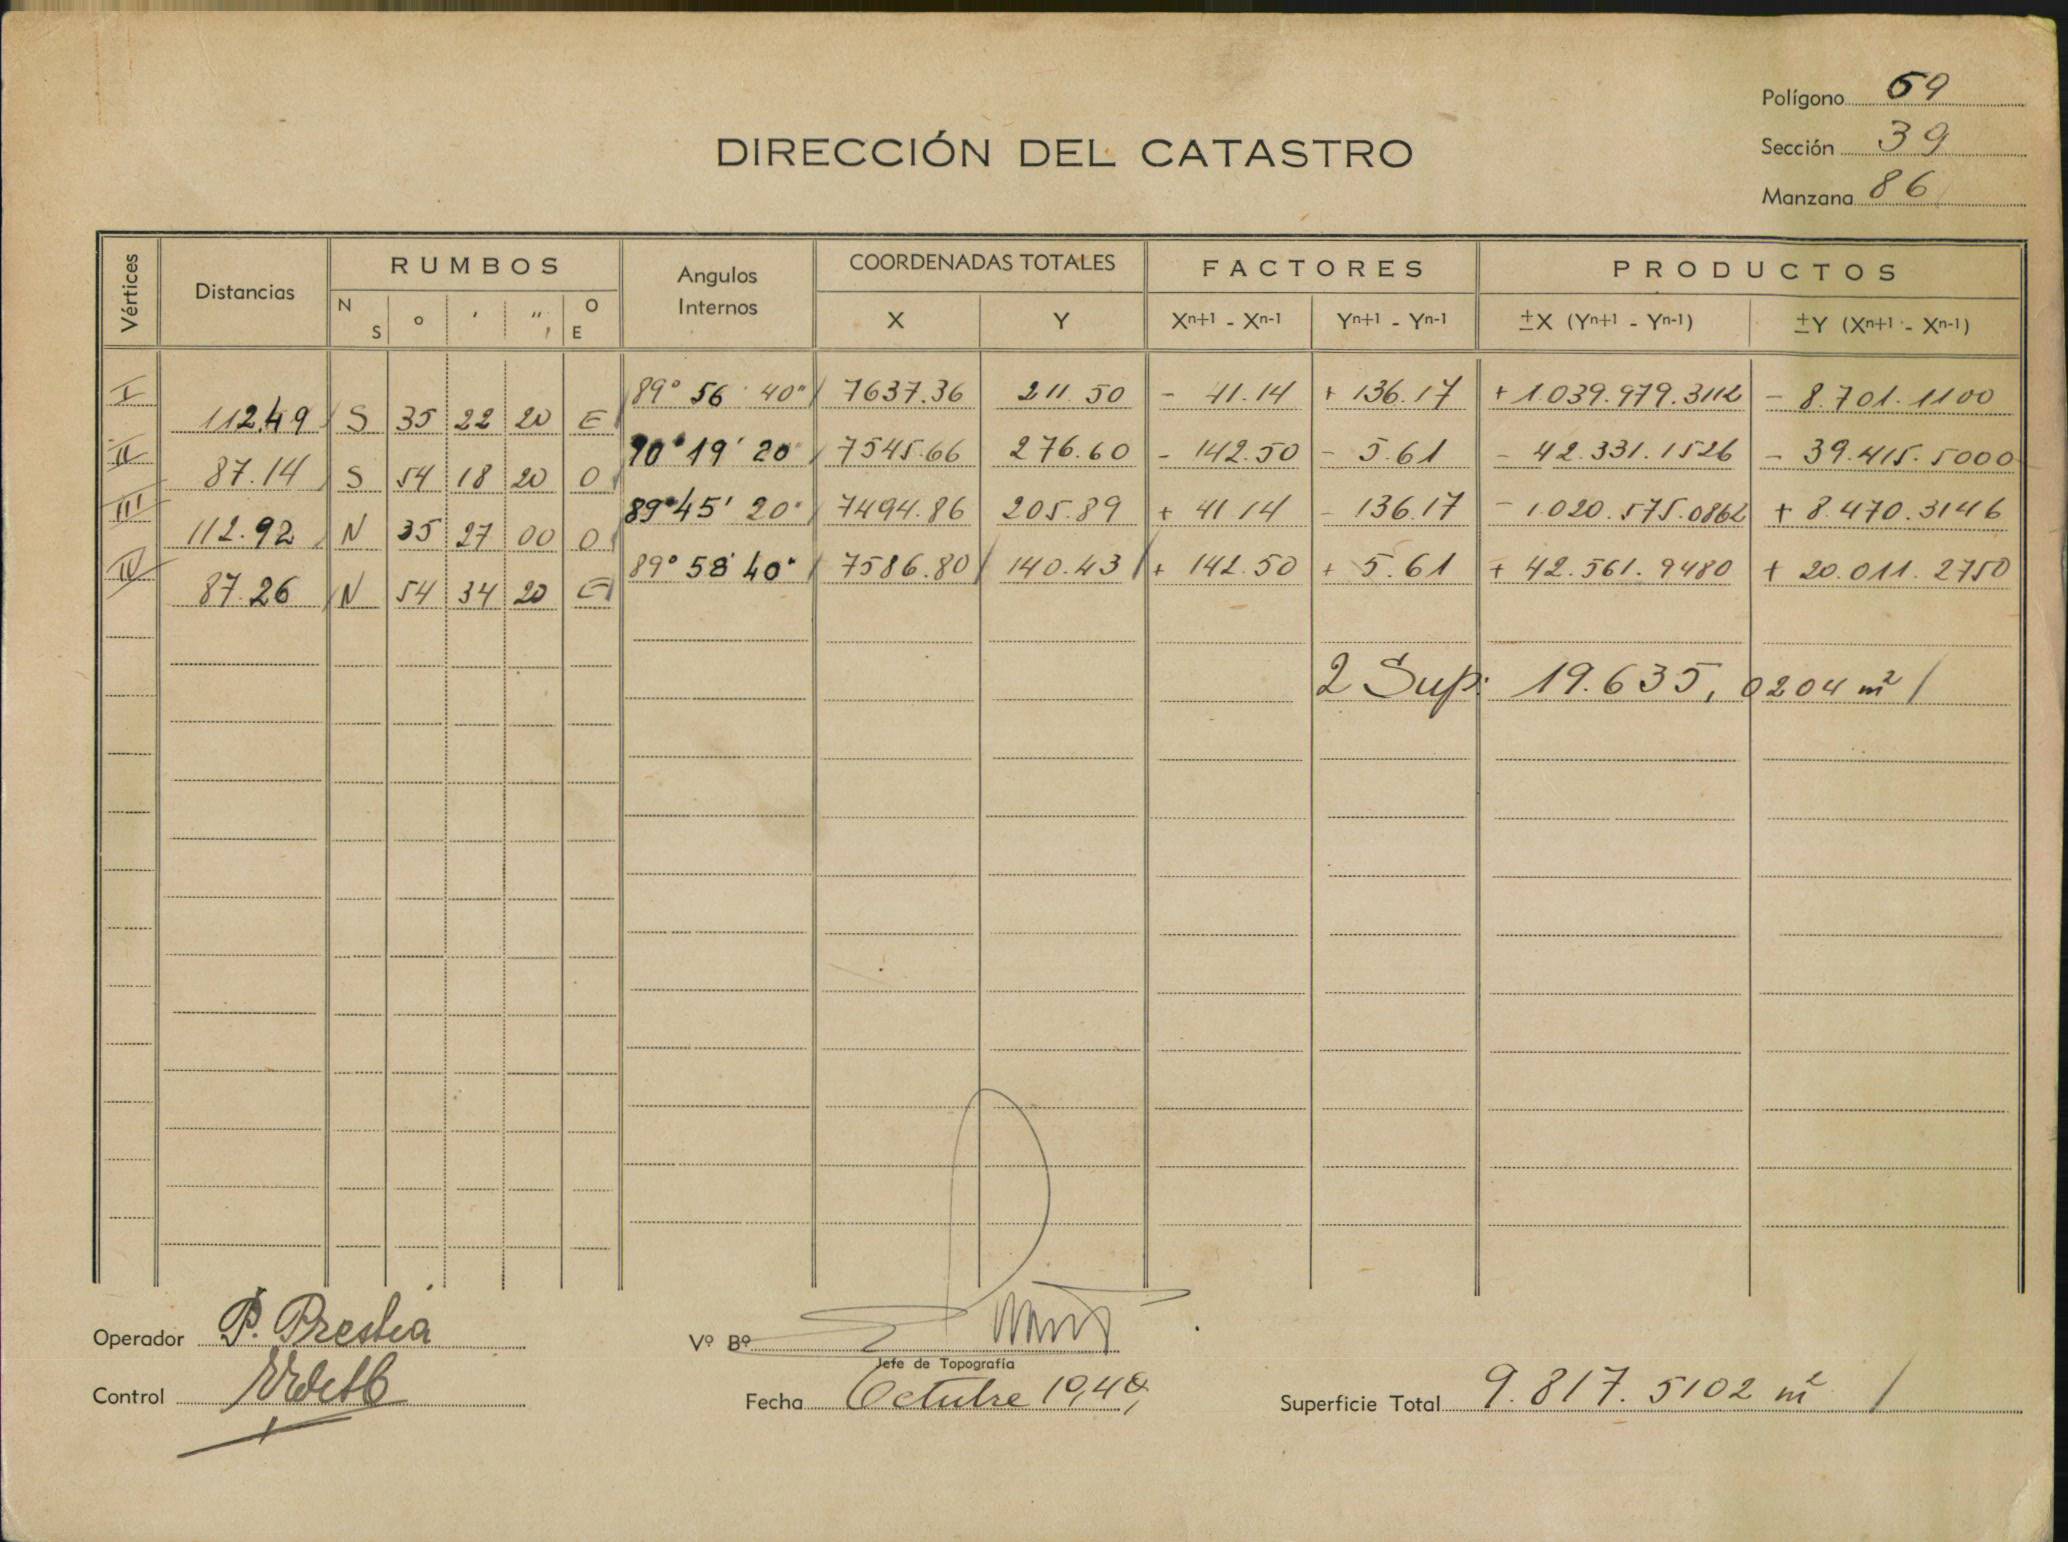 Polígono 59
DIRECCIÓN DEL CATASTRO
Sección 39
Manzana 86
Vértices Distancias RUMBOS Angulos Internos COORDENADAS TOTALES FACTORES PRODUCTOS
N S o ' " O E X Y Xn+1 - Xn-1 Yn+1 - Yn-1 ±X (Yn+1 - Yn-1) ±Y (Xn+1 - Xn-1)
I 89° 56' 40" 7637.36 211.50 - 41.14 + 136.17 + 1.039.979.3112 - 8.701.1100
112.49 S 35 22 20 E
II 90° 19' 20" 7545.66 276.60 - 142.50 - 5.61 - 42.331.1526 - 39.415.5000
87.14 S 54 18 20 O
III 89° 45' 20" 7494.86 205.89 + 41.14 - 136.17 - 1.020.575.0862 + 8.470.3146
112.92 N 35 27 00 O
IV 89° 58' 40" 7586.80 140.43 + 142.50 + 5.61 + 42.561.9480 + 20.011.2750
87.26 N 54 34 20 E
2 Sup: 19.635,0204 m²
Operador P. Prestia
Vº Bº
Jefe de Topografía
Control
Fecha Octubre 1949
Superficie Total 9.817.5102 m²